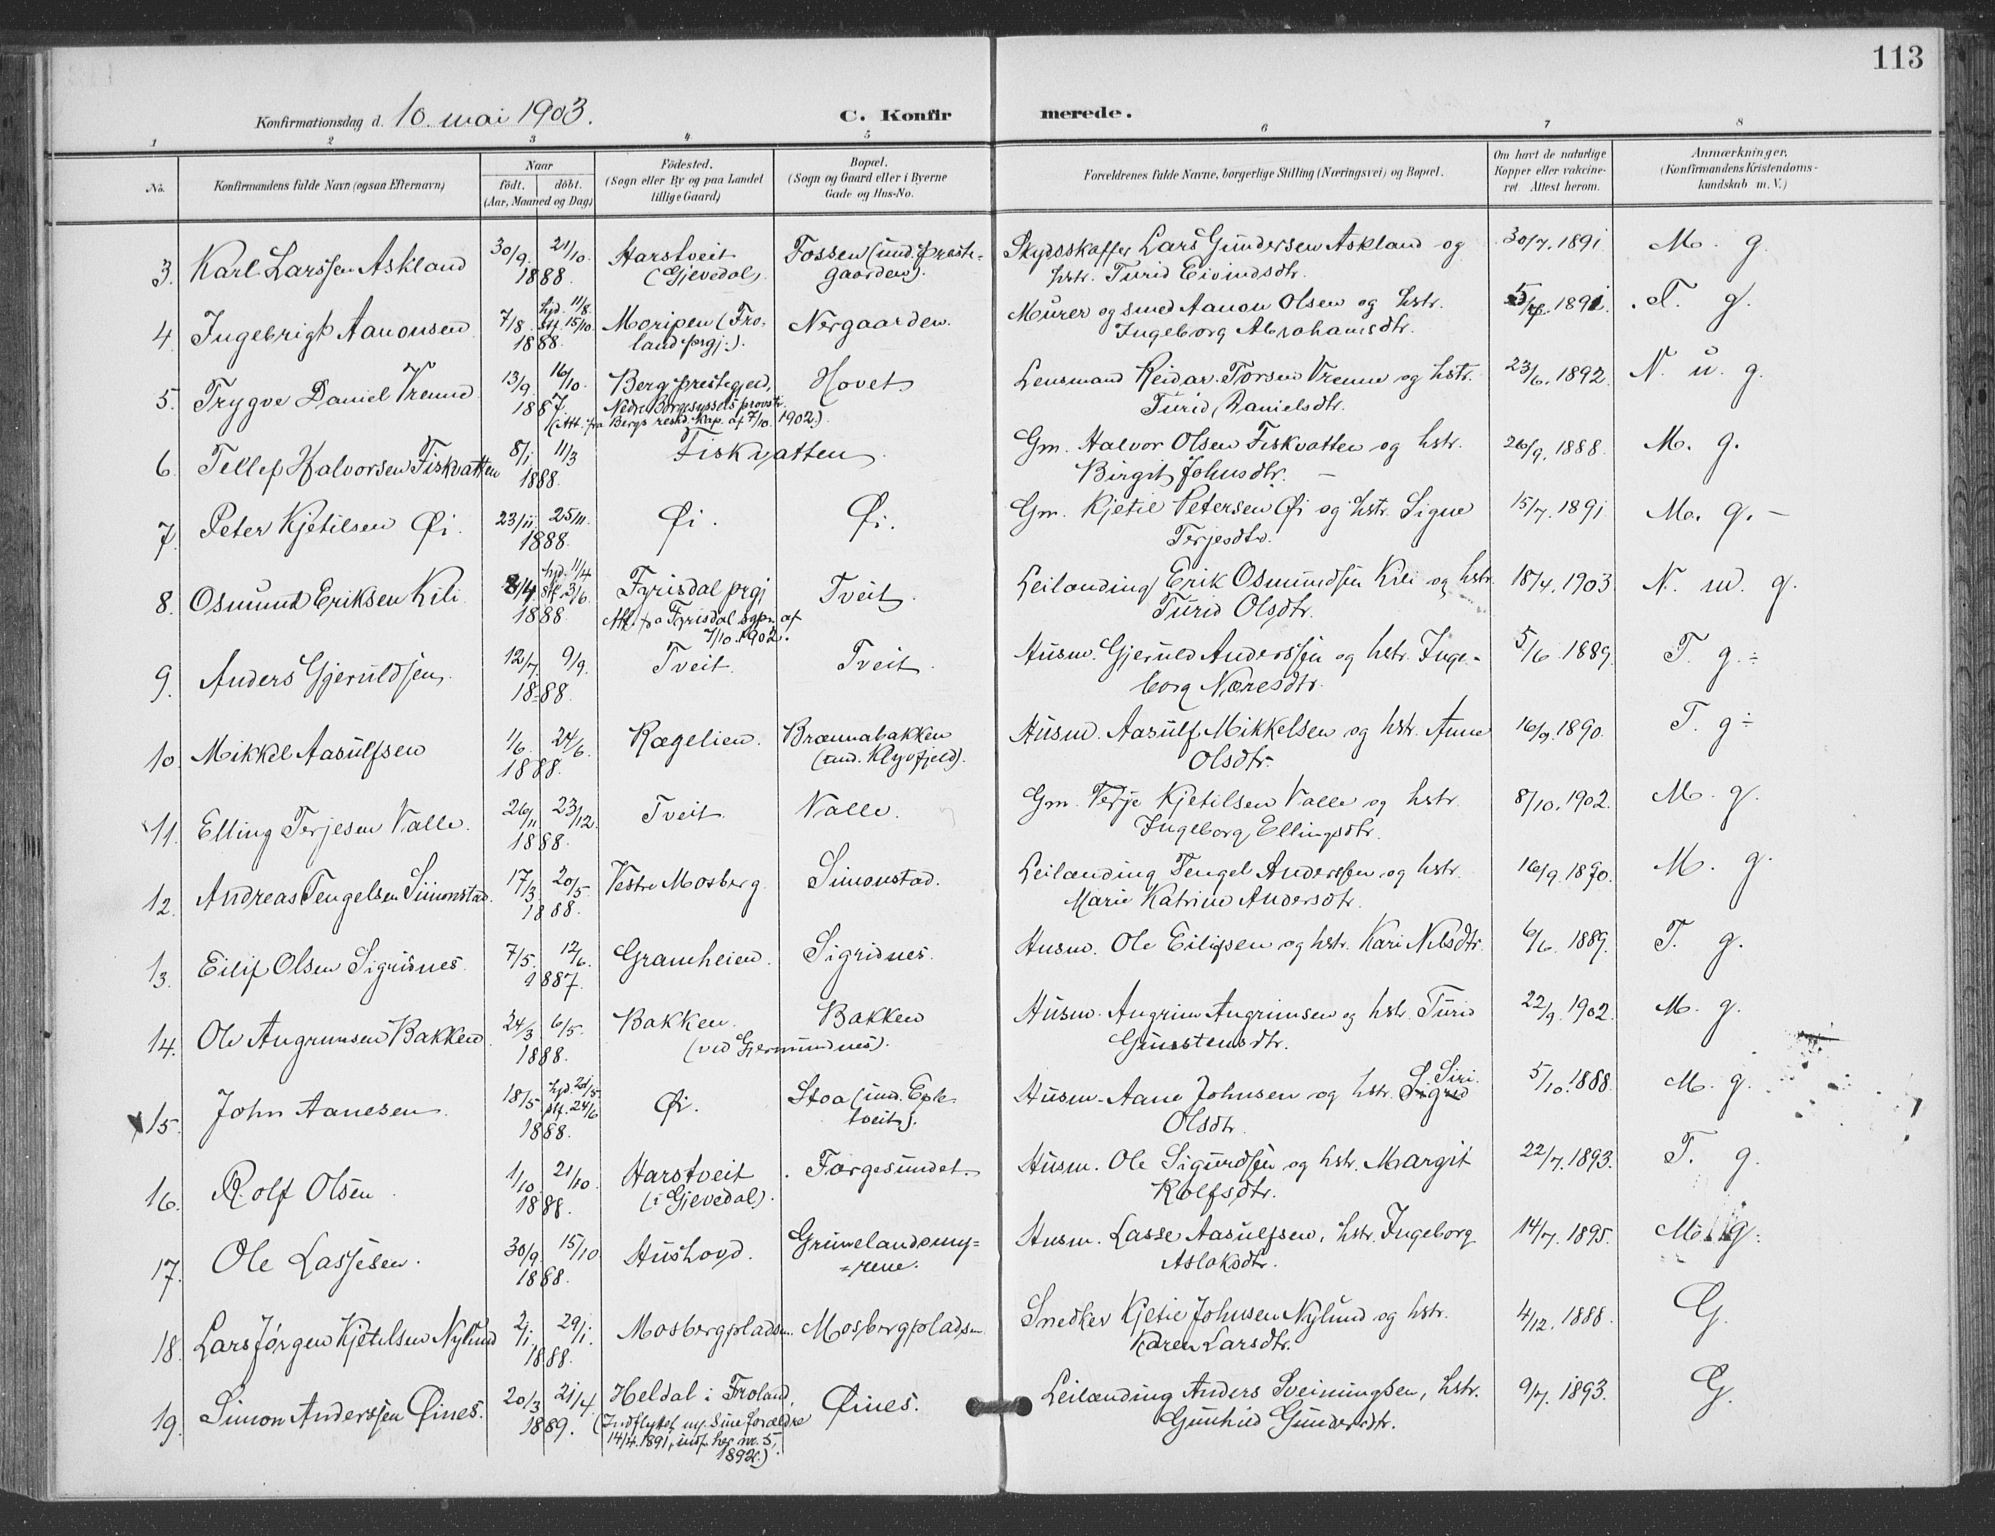 113
Konfirmationsdag d. 10. mai 1903. C. Konfirmerede.
1 2 3 4 5 6 7 8
No. Konfirmandens fulde Navn (ogsaa Efternavn) Naar født. døbt. (Aar, Maaned og Dag) Fødested. (Sogn eller By og paa Landet tillige Gaard) Bopæl. (Sogn og Gaard eller i Byerne Gade og Hus-No. Forældrenes fulde Navne, borgerlige Stilling (Næringsvei) og Bopæl. Om havt de naturlige Kopper eller vakcineret. Attest herom. Anmærkninger, (Konfirmandens Kristendomskundskab m. V.)
3. Karl Larssen Askland 30/9. 21/10. 1888 Harstveit (Gjevedal). Fossen (und. prestegaarden). Skydsskaffer Lars Gundersen Askland og hstr. Turid Eivindsdtr. 30/7. 1891 M. g.
4. Ingebrigt Aanonsen 7/8. hjd. 11/8. stf. 15/10. 1888 Moripen (Froland prgj.). Nergaarden. Murer og smed Aanon Olsen og hstr. Ingeborg Abrahamsdtr. 1891. T. g.
5. Trygve Daniel Vrenne 13/9. 16/10. 1887. Berg prestegjeld, Nedre Borgesyssels provsti. (Att. fra Bergs resid. kap. af 7/10. 1902.) Hovet Lensmand Reidar Torsen Vrenne og hstr. Turid Danielsdtr. 23/6. 1892. N. u. g.
6. Tellef Halvorsen Fiskvatten 8/1 11/3 1888. Fiskvatten. Gm. Halvor Olsen Fiskvatten og hstr. Birgit Johnsdtr. 26/9. 1888. M. g.
7. Peter Kjetilsen Øi. 23/11. 25/11. 1888. Øi. Øi. Gm. Kjetil Petersen Øi og hstr. Signe Terjesdtr. 15/7. 1891 M. g. -
8. Osmund Eriksen Kili 8/4 hjd. 11/4 stf. 3/6. 1888 Fyrisdal prgj Att. fra Fyrisdal sgpr. af 7/10. 1902. Tveit. Leilænding Erik Osmundsen Kili og hstr. Turid Olsdtr. 18/4. 1903. N. m. g.
9. Anders Gjeruldsen. 12/7. 9/9. 1888. Tveit. Tveit. Husm. Gjeruld Anderssen og hstr. Ingeborg Næresdtr. 5/6. 1889. T. g. ÷
10. Mikkel Aasulfsen 1/6. 24/6. 1888. Rægelien. Brænnabakken (und. Klyvfjeld). Husm. Aasulf Mikkelsen og hstr. Anne Olsdtr. 16/9. 1890. T. g ÷
11. Elling Terjesen Valle. 26/11 23/12. 1888. Tveit. Valle. Gm. Terje Kjetilsen Valle og hstr. Ingeborg Ellingsdtr. 8/10. 1902. M. g.
12. Andreas Tengelsen Simonstad. 17/3. 20/5. 1888. Vestre Mosberg. Simonstad. Leilænding Tengel Anderssen og hstr. Marie Katrine Andersdtr. 16/9. 1890. M. g.
13. Eilif Olsen Sigridnes. 7/5. 12/6. 1887. Gramheien. Sigridnes. Husm. Ole Eilifsen og hstr. Kari Nilsdtr. 6/6. 1889. T. g.
14. Ole Angrimsen Bakken 24/3 6/5. 1888. Bakken. (ved Gjermundnes). Bakken Husm. Angrim Angrimsen og hstr. Turid Gunstensdtr. 22/9. 1902. M. g.
15. John Aanesen. 18/5. hjd. 21/5. stf. 24/6 1888. Øi. Stoa (und. Eptetveit). Husm. Aane Johnsen og hstr. Sigrid Siri. Olsdtr. 5/10. 1888. M. g.
16. Rolf Olsen. 1/10. 21/10. 1888. Harstveit (i Gjevedal). Torgesundet. Husm. Ole Sigurdsen og hstr. Margit Rolfsdtr. 22/7. 1893. T. g.
17. Ole Lassesen. 30/9. 15/10 1888. Hushovd. Grimelandsmyrene. Husm. Lasse Aasulfsen, hstr. Ingeborg Aslaksdtr. 14/7. 1895. M. g.
18. Lars Jørgen Kjetilsen Nylund 2/1 29/1. 1888. Mosbergpladsen. Mosbergpladsen Snedker Kjetil Johnsen Nylund og hstr. Karen Larsdtr. 4/12. 1888. G.
19. Simon Anderssen Øines. 20/3 21/4 1889. Heldal i Froland, (Indflyttet m. sine forældre 14/4. 1891, indf. her nr. 5, 1892.) Øines. Leilænding Anders Sveinungsen, hstr. Gunhild Gundersdtr. 9/7. 1893. G.